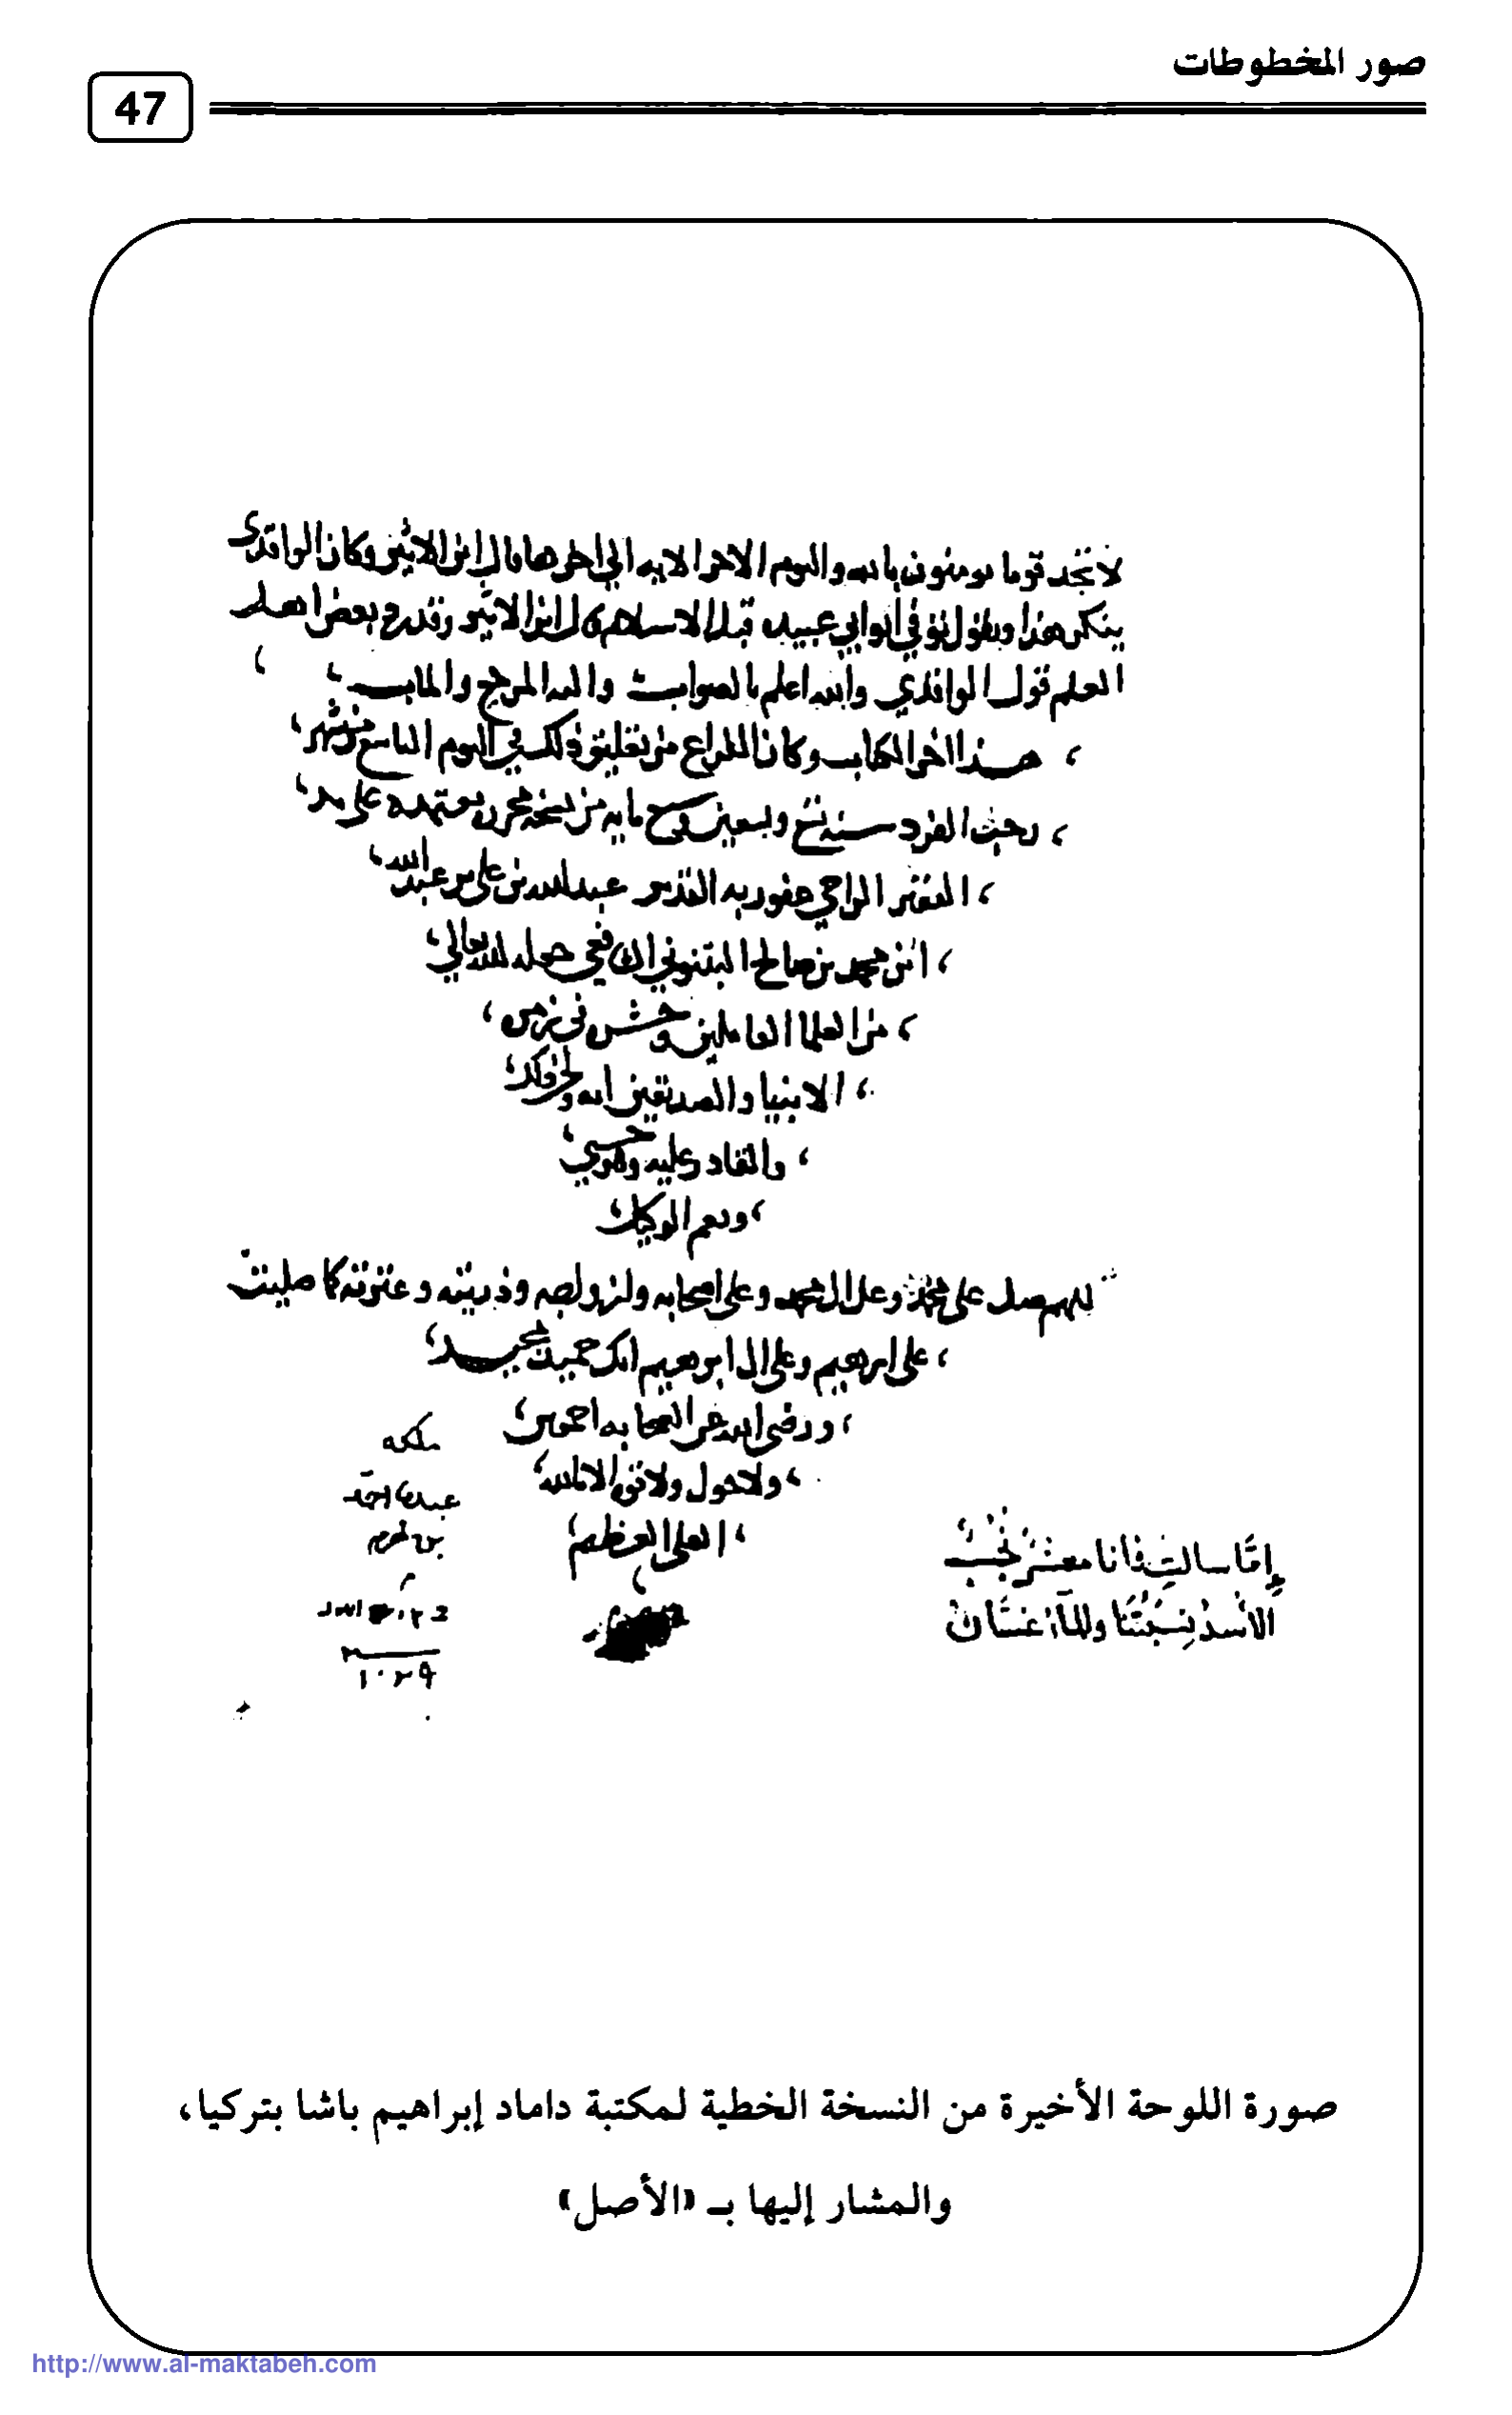 صور المخطوطات
47
لا تجد قوما يومنون بالله واليوم الاخر الايه الي اخرها قال ابن الاثير وكان الواقدي
ينكر هذا ويقول توفي ابو ابي عبيده قبل الاسلام قال ابن الاثير وقد رد بعض اهل
العلم قول الواقدي والله اعلم بالصواب واليه المرجع والماب
هذا اخر الكتاب وكان الفراغ من تعليق ذلك في اليوم التاسع من شهر
رجب الفرد سنه تسع وسبعين وسبع مايه من نسخه محرره معتمده علي يد
الفقير الراجي عفو ربه القدير عبدالله بن علي بن عبدالله
ابن محمد بن صالح الشافعي جعله الله تعالي
من العلما العاملين وحشر في زمره
الانبيا والصديقين انه ولي ذلك
والقادر عليه وهو حسبي
ونعم الوكيل
اللهم صل على محمد وعلى ال محمد وعلى اصحابه وازواجه وذريته وعترته كما صليت
على ابرهيم وعلى ال ابرهيم انك حميد مجيد
ورضي الله عن الصحابه اجمعين
ولا حول ولا قوه الا بالله
العلي العظيم
ملكه
احمد
بن
١٠٢٩
إمّا سالت فانا معشر نجب
الأسد نسبتنا والماء غسان
صورة اللوحة الأخيرة من النسخة الخطية لمكتبة داماد إبراهيم باشا بتركيا،
والمشار إليها بـ «الأصل»
http://www.al-maktabeh.com